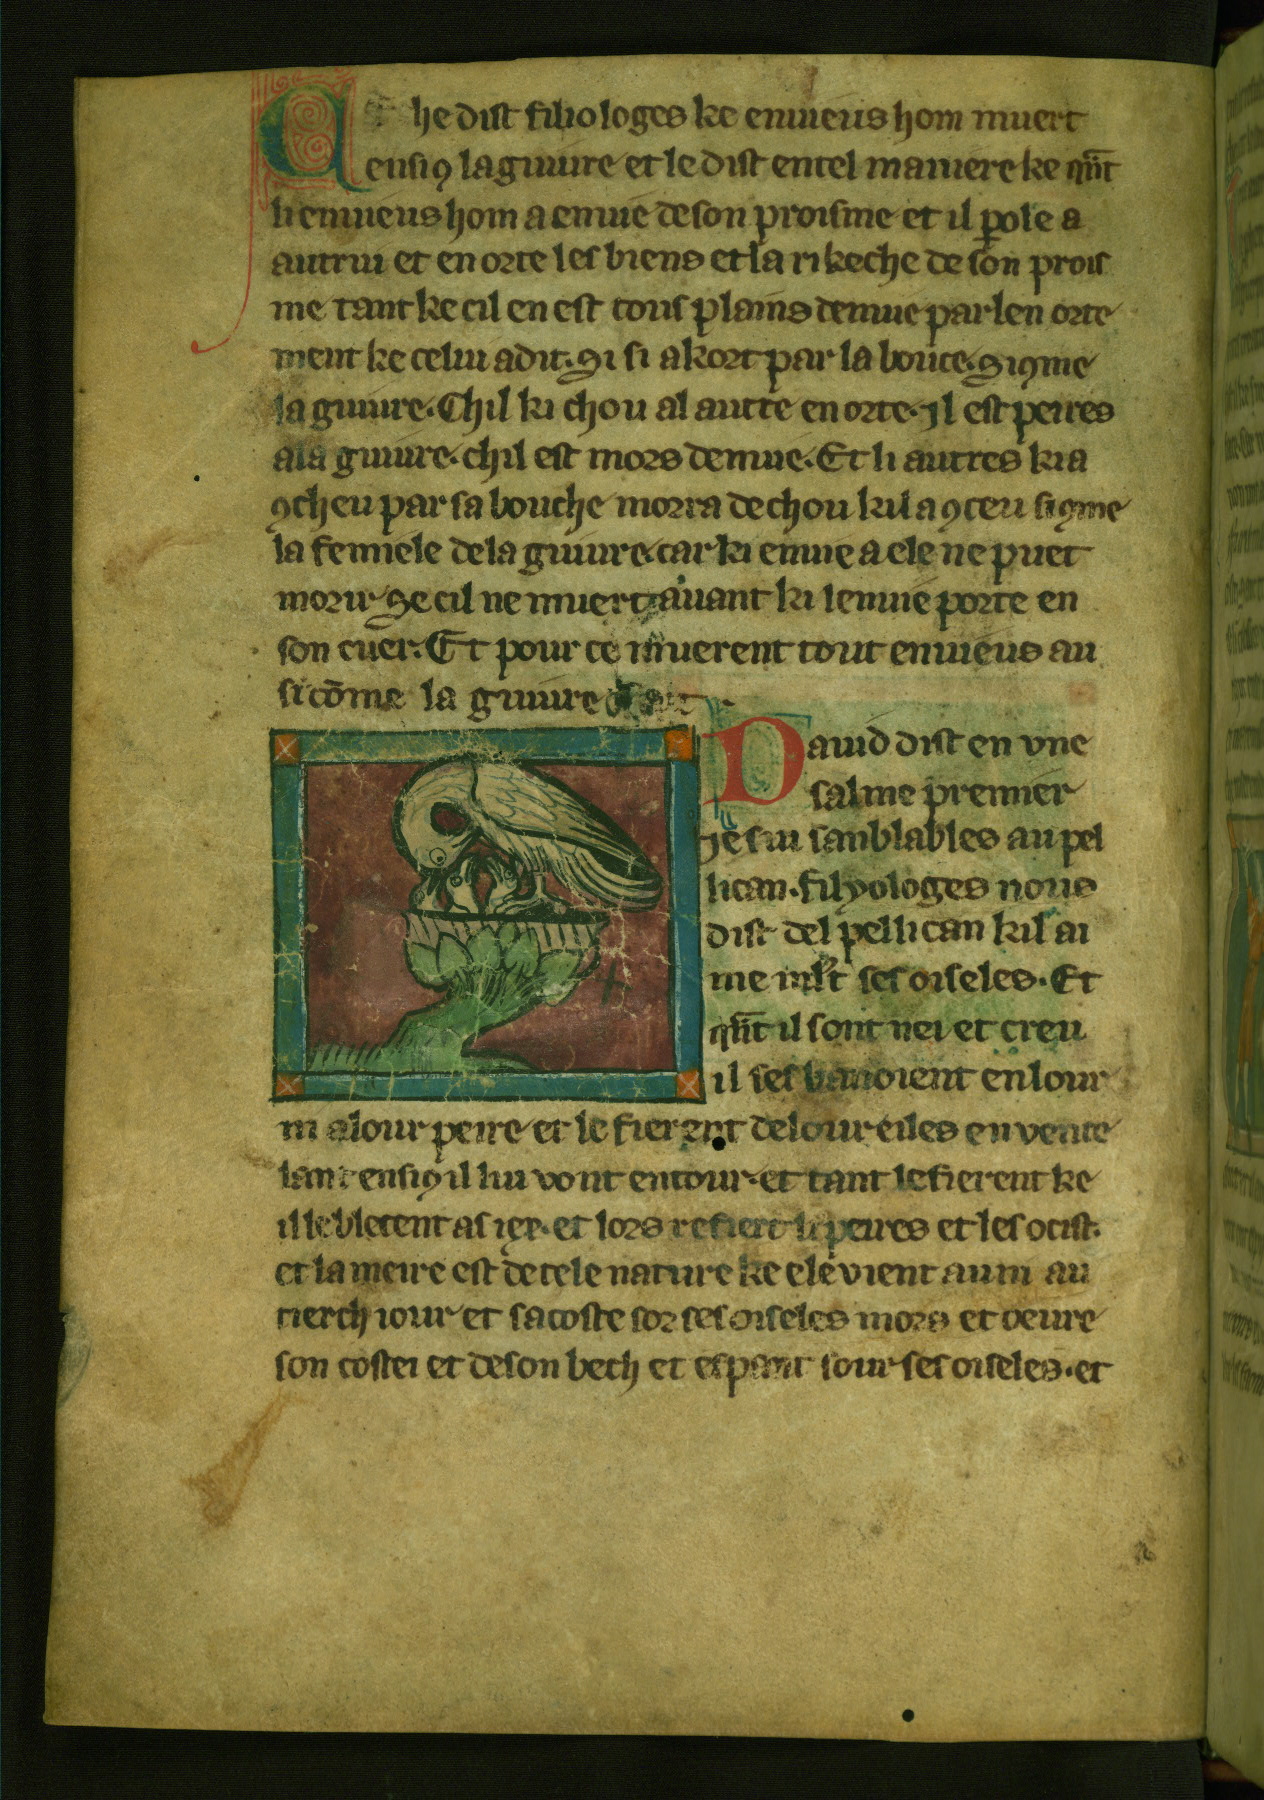 Che dist filiologes ke enuieus hom muert
ensiꝯ la guiure et le dist en tel maniere ke qu̅t
li enuieus hom a enuie de son proisme et il ꝑole a
autrui et en orte les biens et la rikeche de son prois
me tant ke cil en est tous plains denuie par len orte
ment ke celui a dit. Si si akort par la bouce. Siꝯme
la guiure. Chil ki chou al autre en orte. Il est peires
a la guiure. chil est mors denuie. Et li autres ki a
ꝯcheu par sa bouche morra de chou kil a ꝯceu siꝯme
la femele de la guiure. car ki enuie a ele ne puet
morir se cil ne muert auant ki lenuie porte en
son cuer. Et pour ce muerent tout enuieus au
si co̅me la guiure
Dauid dist en vne
salme premier
Je sui sanblables au pel
lican. filyologes nous
dist del pellican kil ai
me mlt ses oiseles. Et
qu̅t il sont nei et creu
il ses banoient en lour
ni a lour peire et le fierent de lour eiles en vente
lant ensiꝯ il lui vont entour. et tant le fierent ke
il le blecent as iex. et lors refiert li peires et les ocist.
et la meire est de tele nature ke ele vient au ni au
tierch iour et sacoste sor ses oiseles mors et oeure
son costei et de son bech et espant sour ses oiseles. et